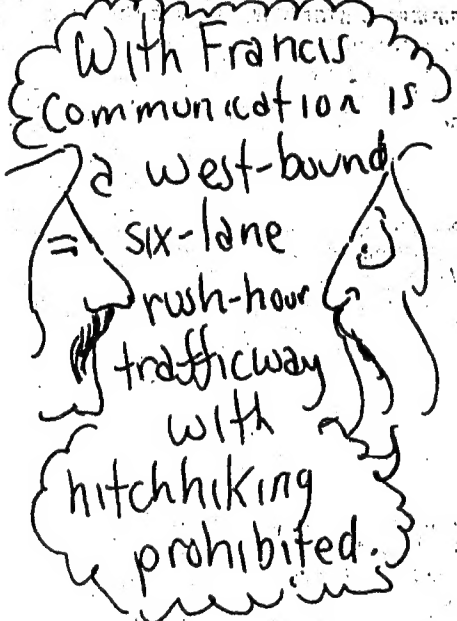 With Francis
communication is
a west-bound
six-lane
rush-hour
trafficway
with
hitchhiking
prohibited.